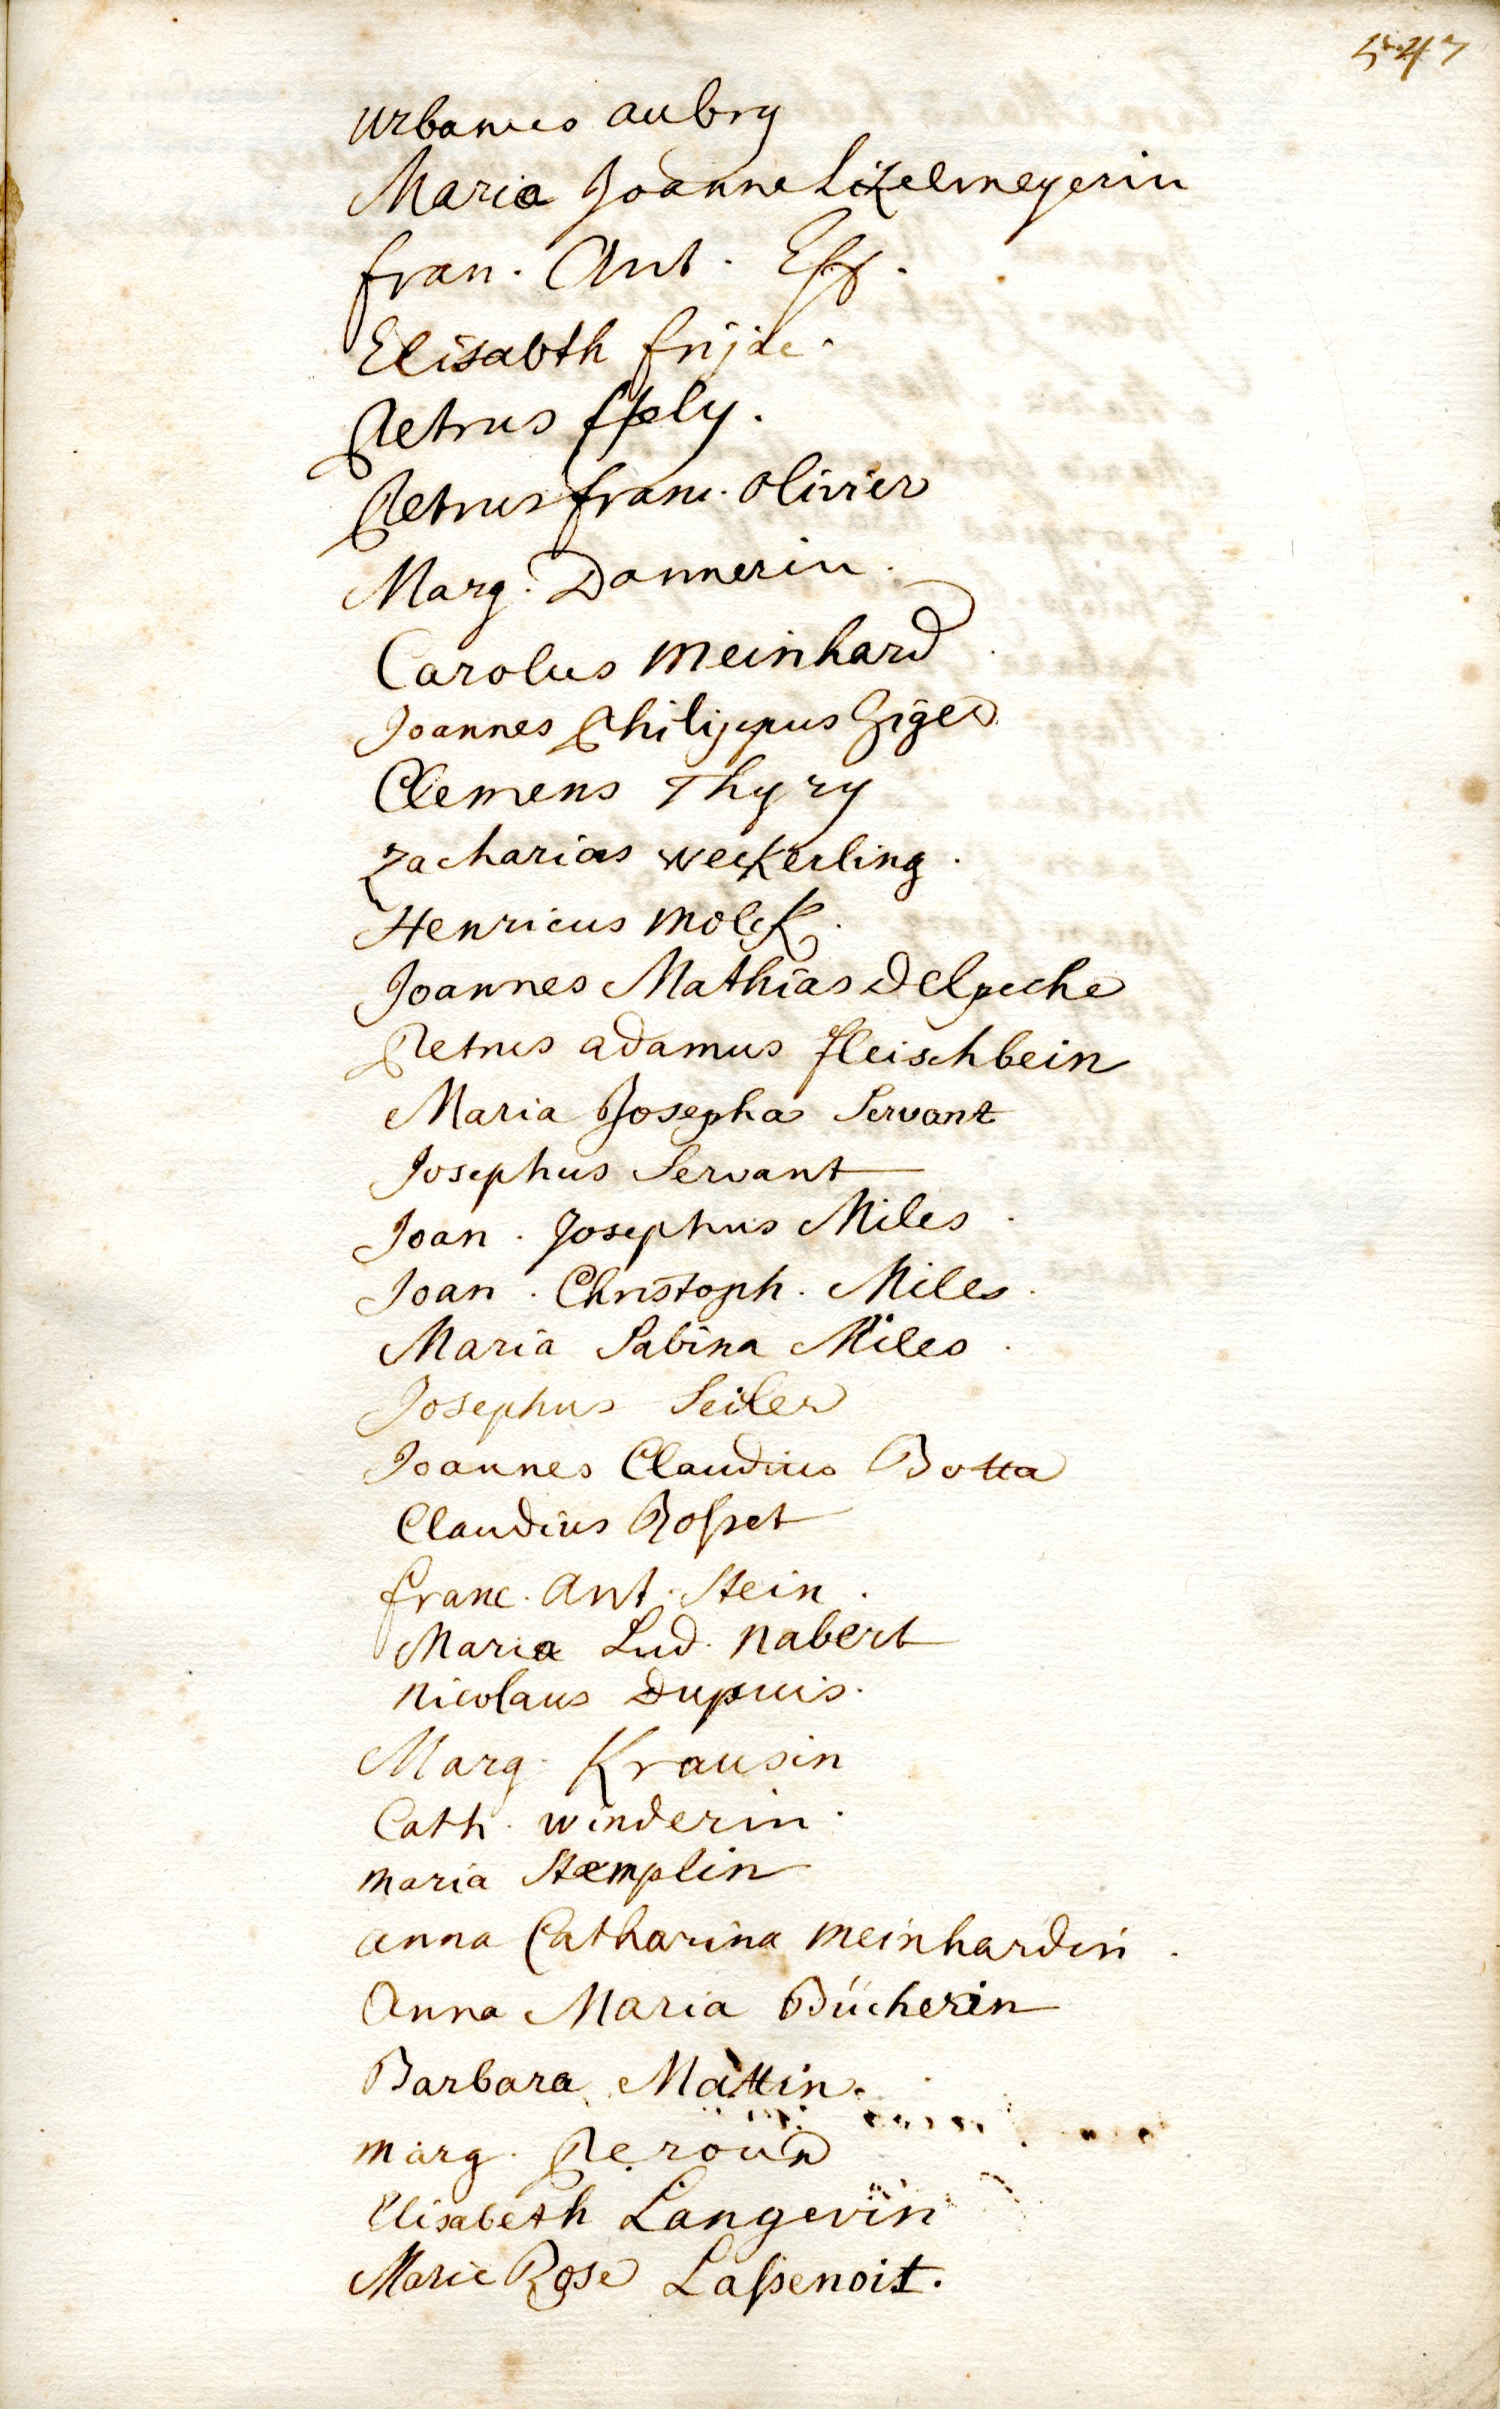 547
urbanus aubry
Maria Joanne Lizelmeyerin
fran. Ant. Ess.
Elisabth frijde.
Petrus Eply.
Petrus franc. olivier
Marg. Dannerin.
Carolus Meinhard.
Joannes Philippus Giger
Clemens Thyry
Zacharias weckerling.
Henricus Molck.
Joannes Mathias Delpeche
Petrus adamus Fleischbein
Maria Josepha Servant
Josephus Servant
Joan. Josephus Miles.
Joan. Christoph. Miles.
Maria Sabina Miles.
Josephus Seiler
Joannes Claudius Botta
Claudius Rosset
franc. Ant. Stein.
Maria Lud. Nabert
Nicolaus Dupuis.
Marg. Krausin
Cath. winderin.
Maria Stæmplin
anna Catharina Meinhardin.
Anna Maria Bücherin
Barbara Mattin.
Marg.
Elisabeth Langevin
Marie Rose Lassenoit.